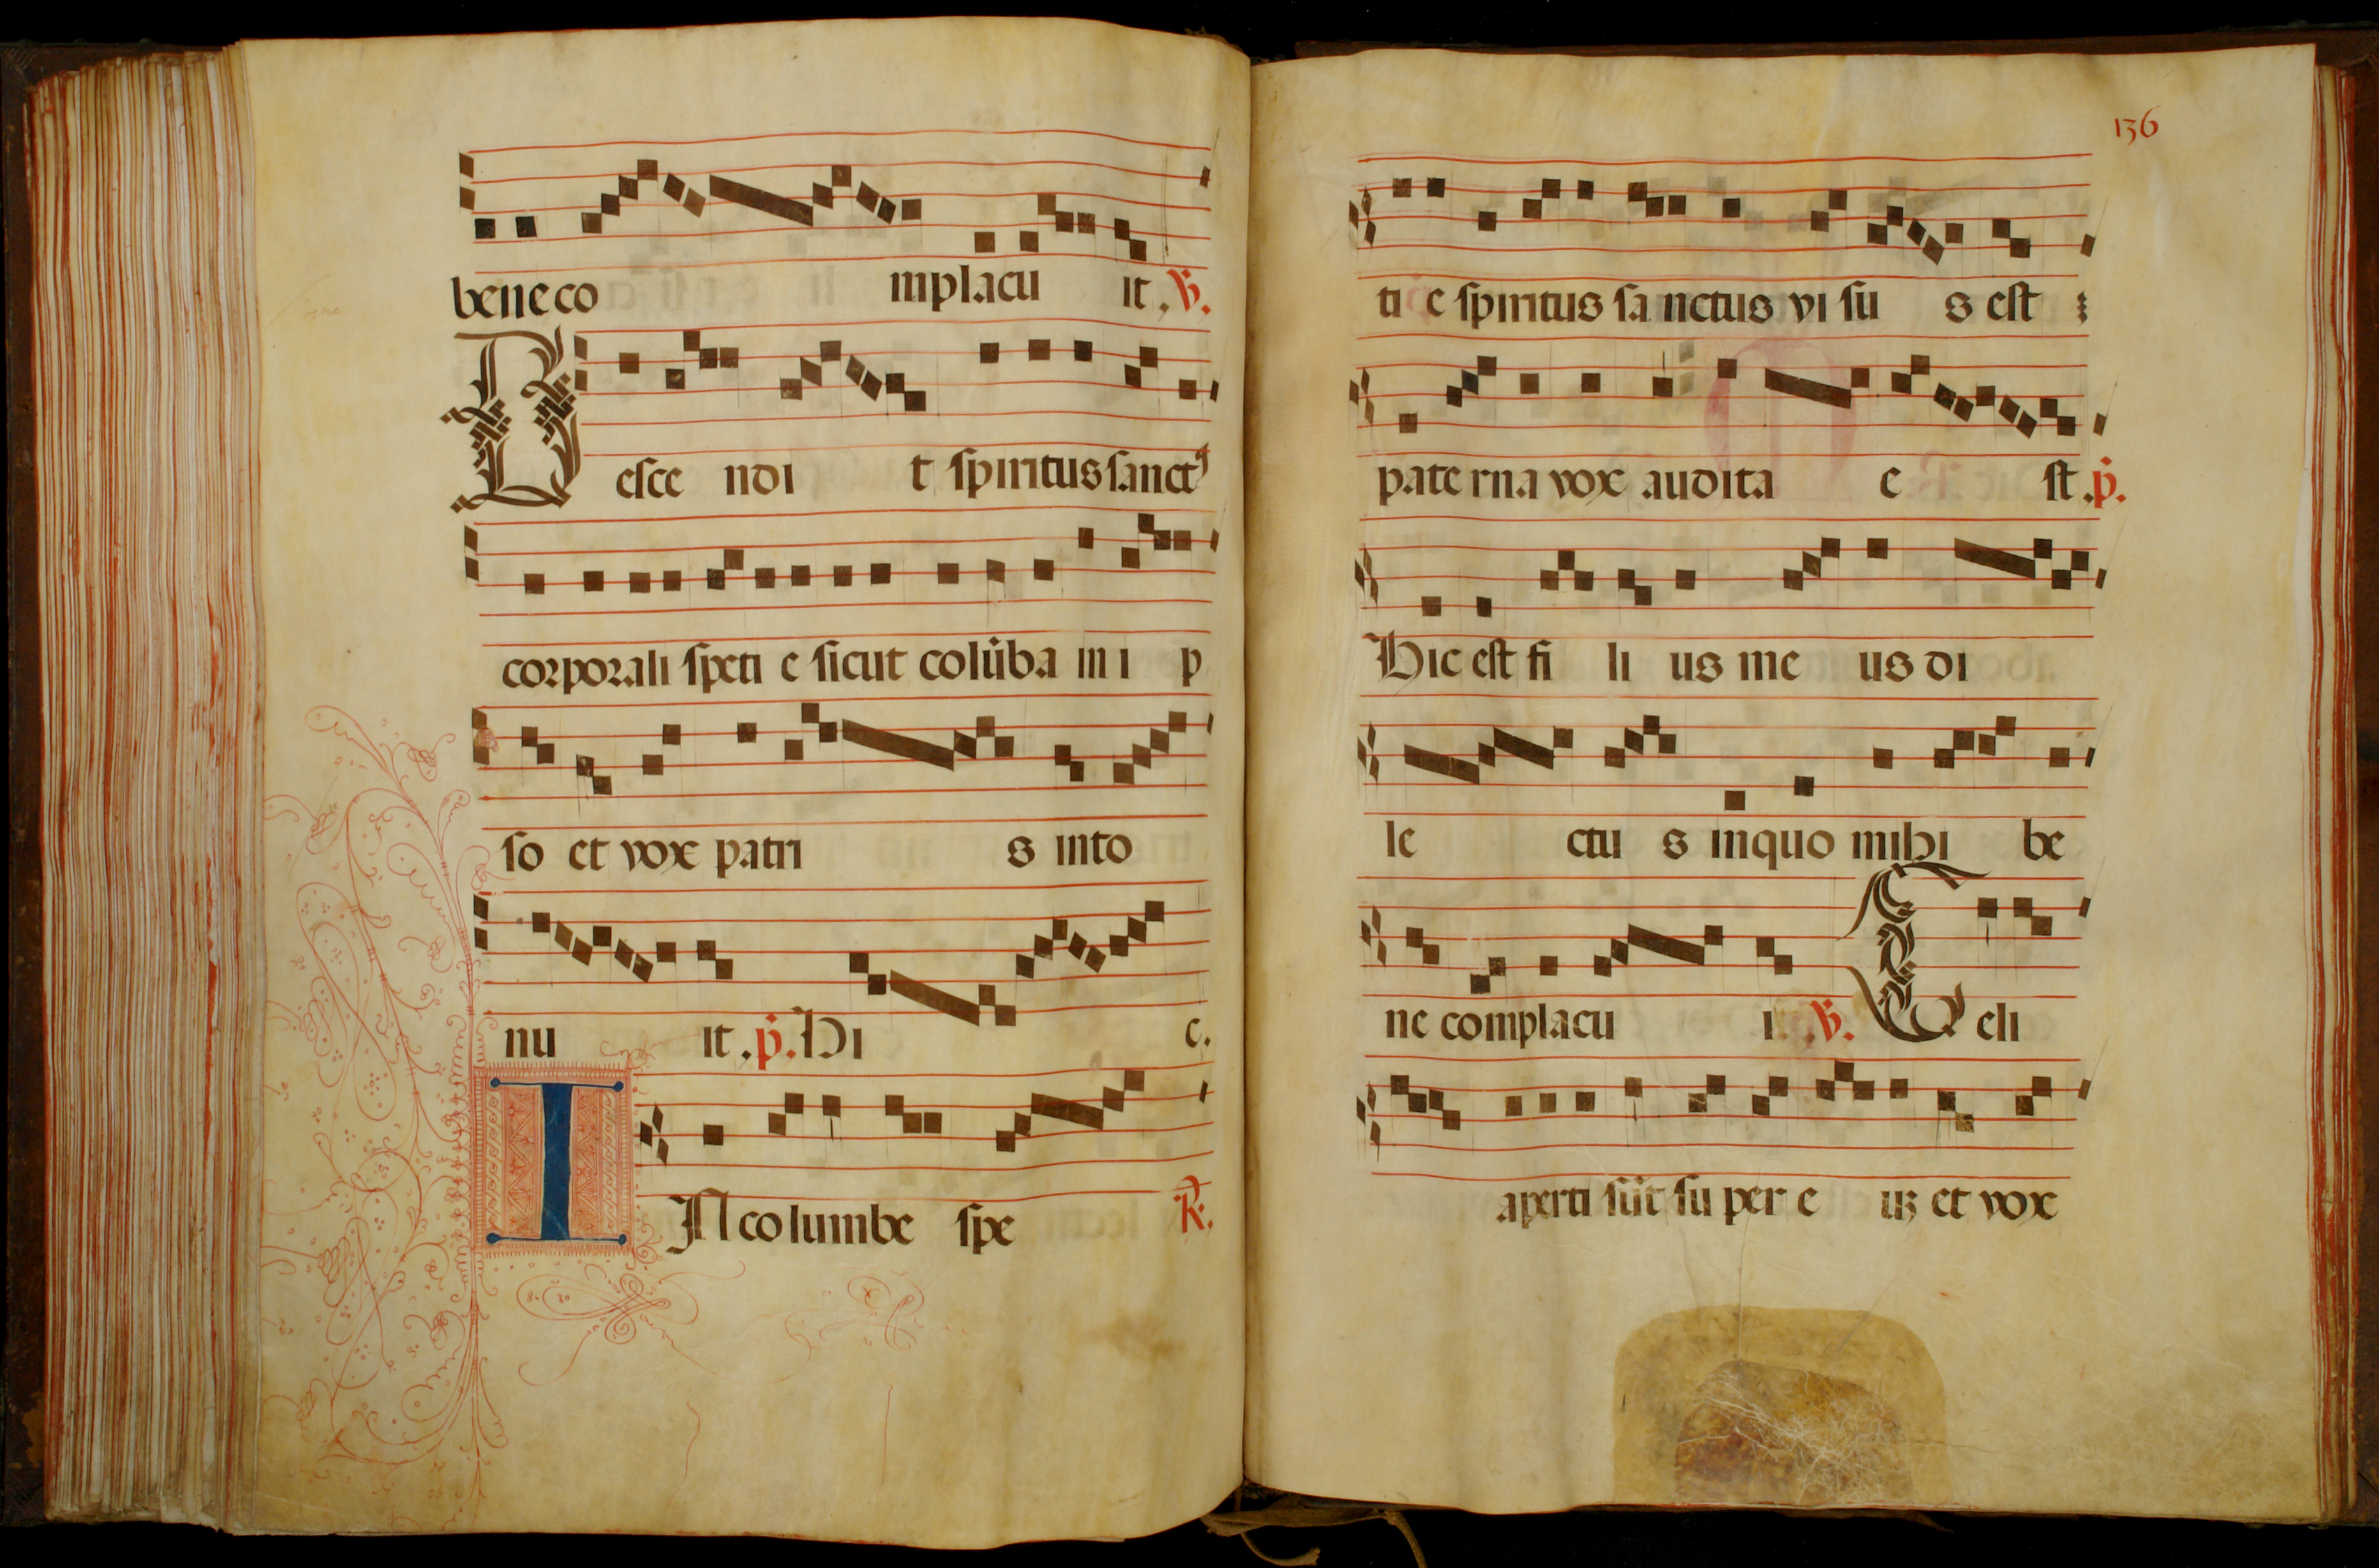 bene co mplacu it. ℣.
D esce ndi t spiritus sanctꝰ
corporali speti e sicut colūba in i p
so et vox patri s into
nu it. p̄. Hi c.
IN columbe spe ℟.
136
ti e spiritus sa nctus vi su s est :
pate rna vox audita e st. p̄.
Hic est fi li us me us di
le ctu s in quo mihi be
ne complacu i. ℣. C eli
aperti sūt su per e uʒ et vox